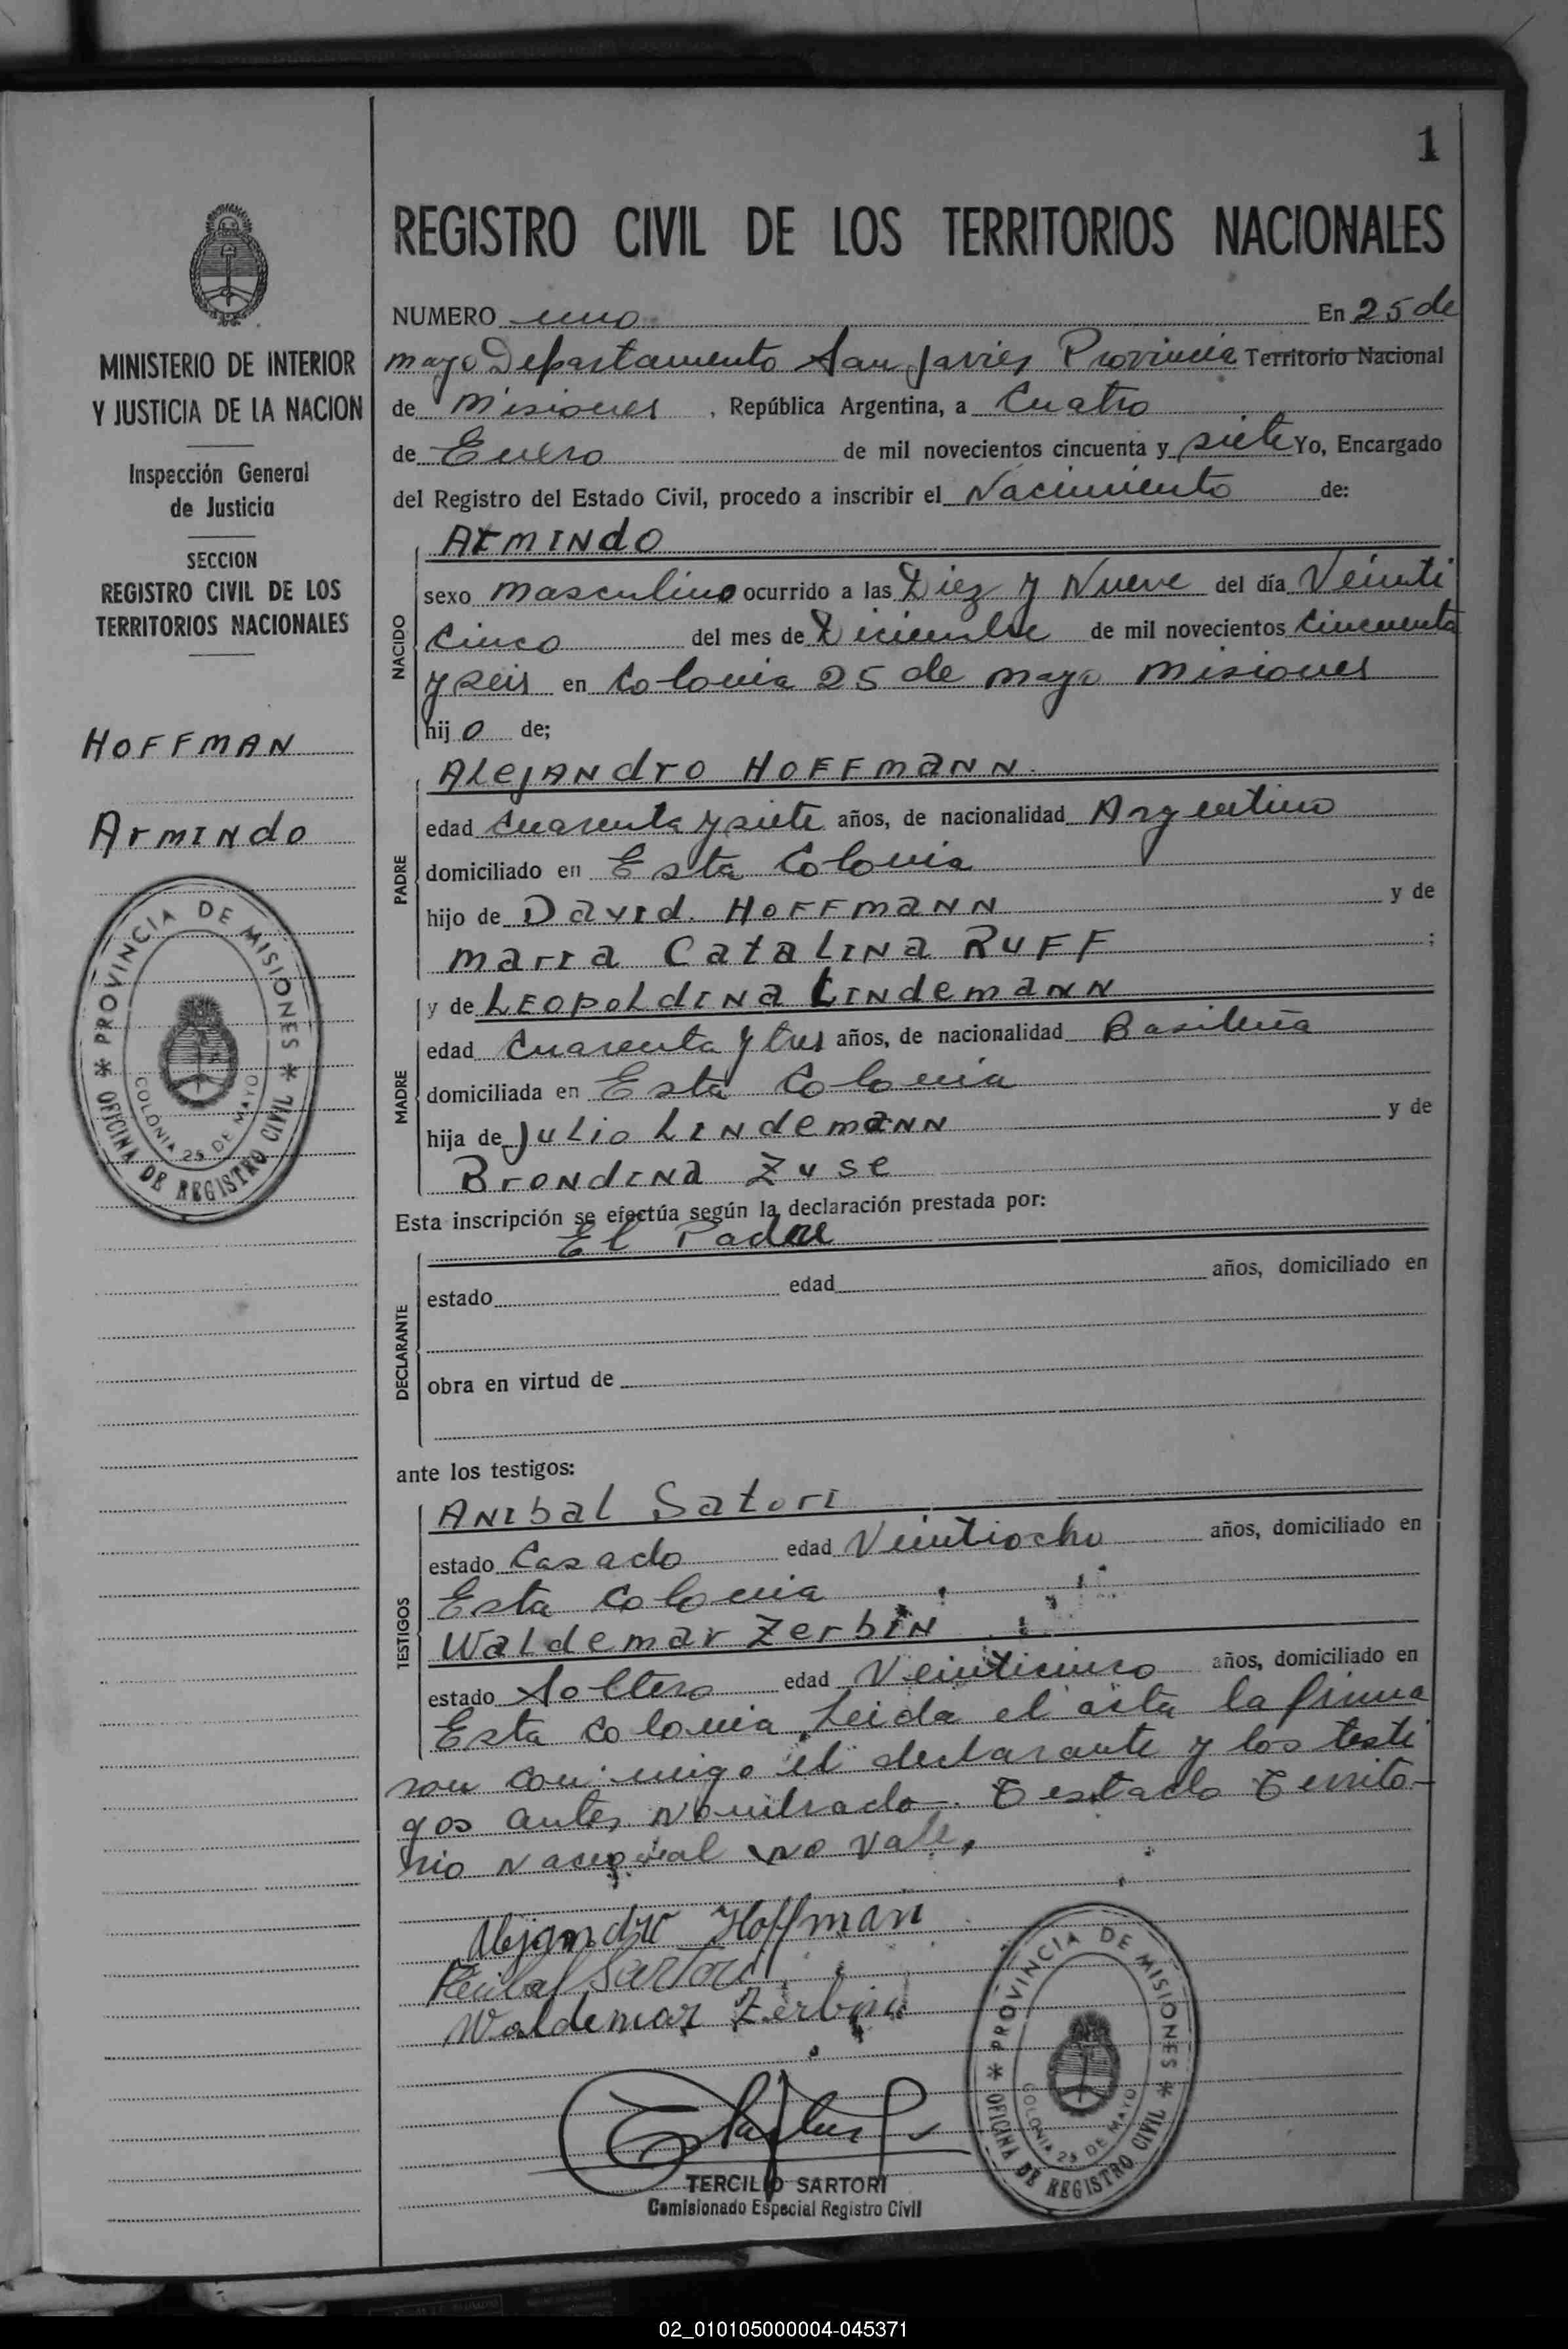 1
REGISTRO CIVIL DE LOS TERRITORIOS NACIONALES
MINISTERIO DE INTERIOR
Y JUSTICIA DE LA NACION
Inspección General
de Justicia
SECCION
REGISTRO CIVIL DE LOS
TERRITORIOS NACIONALES
HOFFMAN
Armindo
PROVINCIA DE MISIONES
COLONIA 25 DE MAYO
OFICINA DE REGISTRO CIVIL
NUMERO uno En 25 de
mayo Departamento San Javier Provincia Territorio Nacional
de Misiones, República Argentina, a Cuatro
de Enero de mil novecientos cincuenta y siete Yo, Encargado
del Registro del Estado Civil, procedo a inscribir el Nacimiento de:
NACIDO
Armindo
sexo masculino ocurrido a las Diez y Nueve del día Veinti
Cinco del mes de Diciembre de mil novecientos Cincuenta
y seis en Colonia 25 de mayo Misiones
hijo de;
PADRE
Alejandro HOFFmann
edad Cuarenta y siete años, de nacionalidad Argentino
domiciliado en Esta Colonia
hijo de David HOFFmann y de
maria Catalina RuFF ;
MADRE
y de Leopoldina Lindemann
edad Cuarenta y tres años, de nacionalidad Basileña
domiciliada en Esta Colonia
hija de Julio Lindemann y de
Brondina Zuse
Esta inscripción se efectúa según la declaración prestada por:
DECLARANTE
El Padre
estado edad años, domiciliado en
obra en virtud de
ante los testigos:
TESTIGOS
Anibal Satori
estado Casado edad Veintiocho años, domiciliado en
Esta Colonia
Waldemar Zerbin
estado Soltero edad Veinticinco años, domiciliado en
Esta colonia Leida el acta la firma
ron con migo el declarante y los testi
gos antes Nombrado. Testado Territo-
rio Nacional no vale.
Alejandro Hoffman
Anibal Sartori
Waldemar Zerbin
TERCILIO SARTORI
Comisionado Especial Registro Civil
PROVINCIA DE MISIONES
COLONIA 25 DE MAYO
OFICINA DE REGISTRO CIVIL
02_010105000004-045371